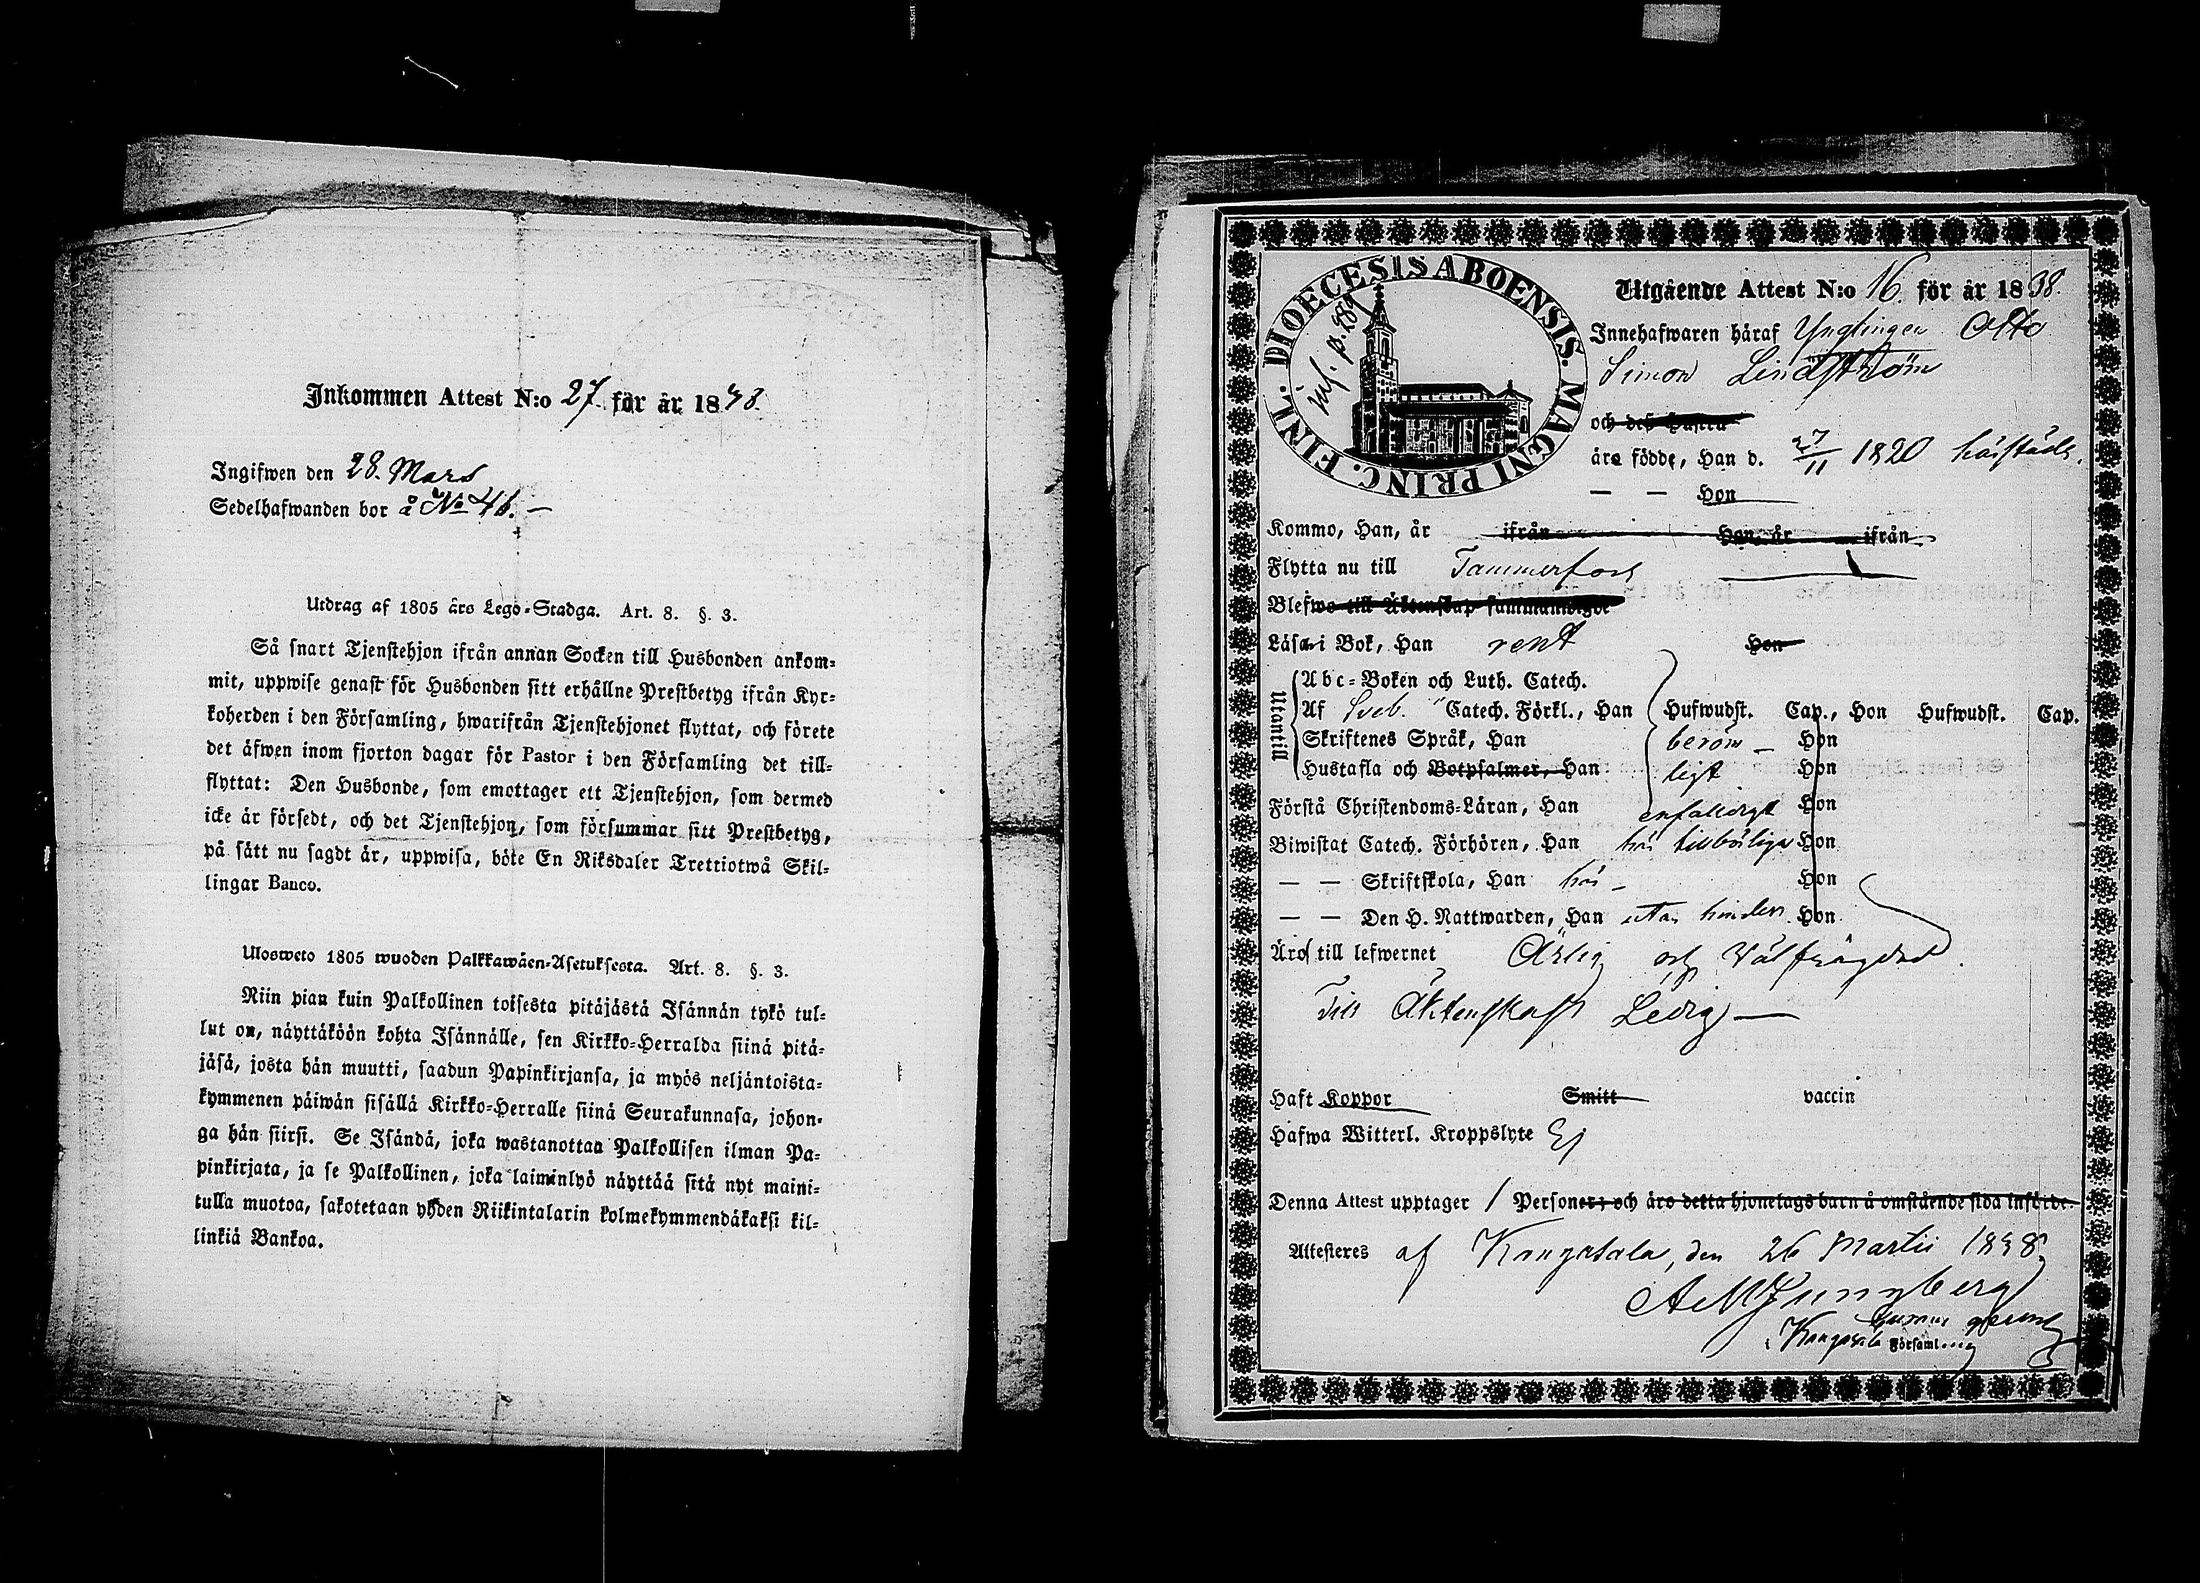 Inkommen Attest N:o 27 för år 1838.
Ingifwen den 28. Mars
Sedelhafwanden bor å No 46. —
Utdrag af 1805 års Lego-Stadga. Art. 8. §. 3.
Så snart Tjenstehjon ifrån annan Socken till Husbonden ankom-
mit, uppwise genast för Husbonden sitt erhållne Prestbetyg ifrån Kyr-
koherden i den Församling, hwarifrån Tjenstehjonet flyttat, och förete
det äfwen inom fjorton dagar för Pastor i den Församling det till-
flyttat: Den Husbonde, som emottager ett Tjenstehjon, som dermed
icke är försedt, och det Tjenstehjon, som försummar sitt Prestbetyg,
på sätt nu sagdt är, uppwisa, böte En Riksdaler Trettiotwå Skil-
lingar Banco.
Ulosweto 1805 wuoden Palkkawäen-Asetuksesta. Art. 8. §. 3.
Niin pian kuin Palkollinen toisesta pitäjästä Isännän tykö tul-
lut on, näyttäköön kohta Isännälle, sen Kirkko-Herralda siinä pitä-
jäsä, josta hän muutti, saadun Papinkirjansa, ja myös neljäntoista-
kymmenen päiwän sisällä Kirkko-Herralle siinä Seurakunnasa, johon-
ga hän siirsi. Se Isändä, joka wastanottaa Palkollisen ilman Pa-
pinkirjata, ja se Palkollinen, joka laiminlyö näyttää sitä nyt maini-
tulla muotoa, sakotetaan yhden Riikintalarin kolmekymmendäkaksi kil-
linkiä Bankoa.
DIOECESIS ABOENSIS. MAGNI PRINC. FINL.
inf. p. 289
Utgående Attest N:o 16. för år 1838.
Innehafwaren häraf Ynglingen Otto
Simon Lindström
och dess Hustru
äre födde, Han d. 27/11 1820 härstädes.
— — Hon
Kommo, Han, år ifrån Hon, år ifrån
Flytta nu till Tammerfors
Blefwo till Äktenskap sammanwigde
Läsa i Bok, Han rent Hon
Utantill
Abc-Boken och Luth. Catech.
Af Sveb. Catech. Förkl., Han Hufwudst. Cap., Hon Hufwudst. Cap.
Skriftenes Språk, Han beröm- Hon
Hustafla och Botpsalmer, Han ligt Hon
Förstå Christendoms-Läran, Han enfaldigt Hon
Biwistat Catech. Förhören, Han här tillbörligen Hon
— — Skriftskola, Han här — Hon
— — Den H. Nattwarden, Han utan hinder Hon
Äro till lefwernet Ärlig och Välfrägdad.
Till Äktenskap Ledig —
Haft Koppor Smitt vaccin
Hafwa Witterl. Kroppslyte Ej
Denna Attest upptager 1 Personer; och äro detta hjonelags barn å omstående sida införde.
Attesteres af Kangasala, den 26 Martii 1838
Kangasala Församling